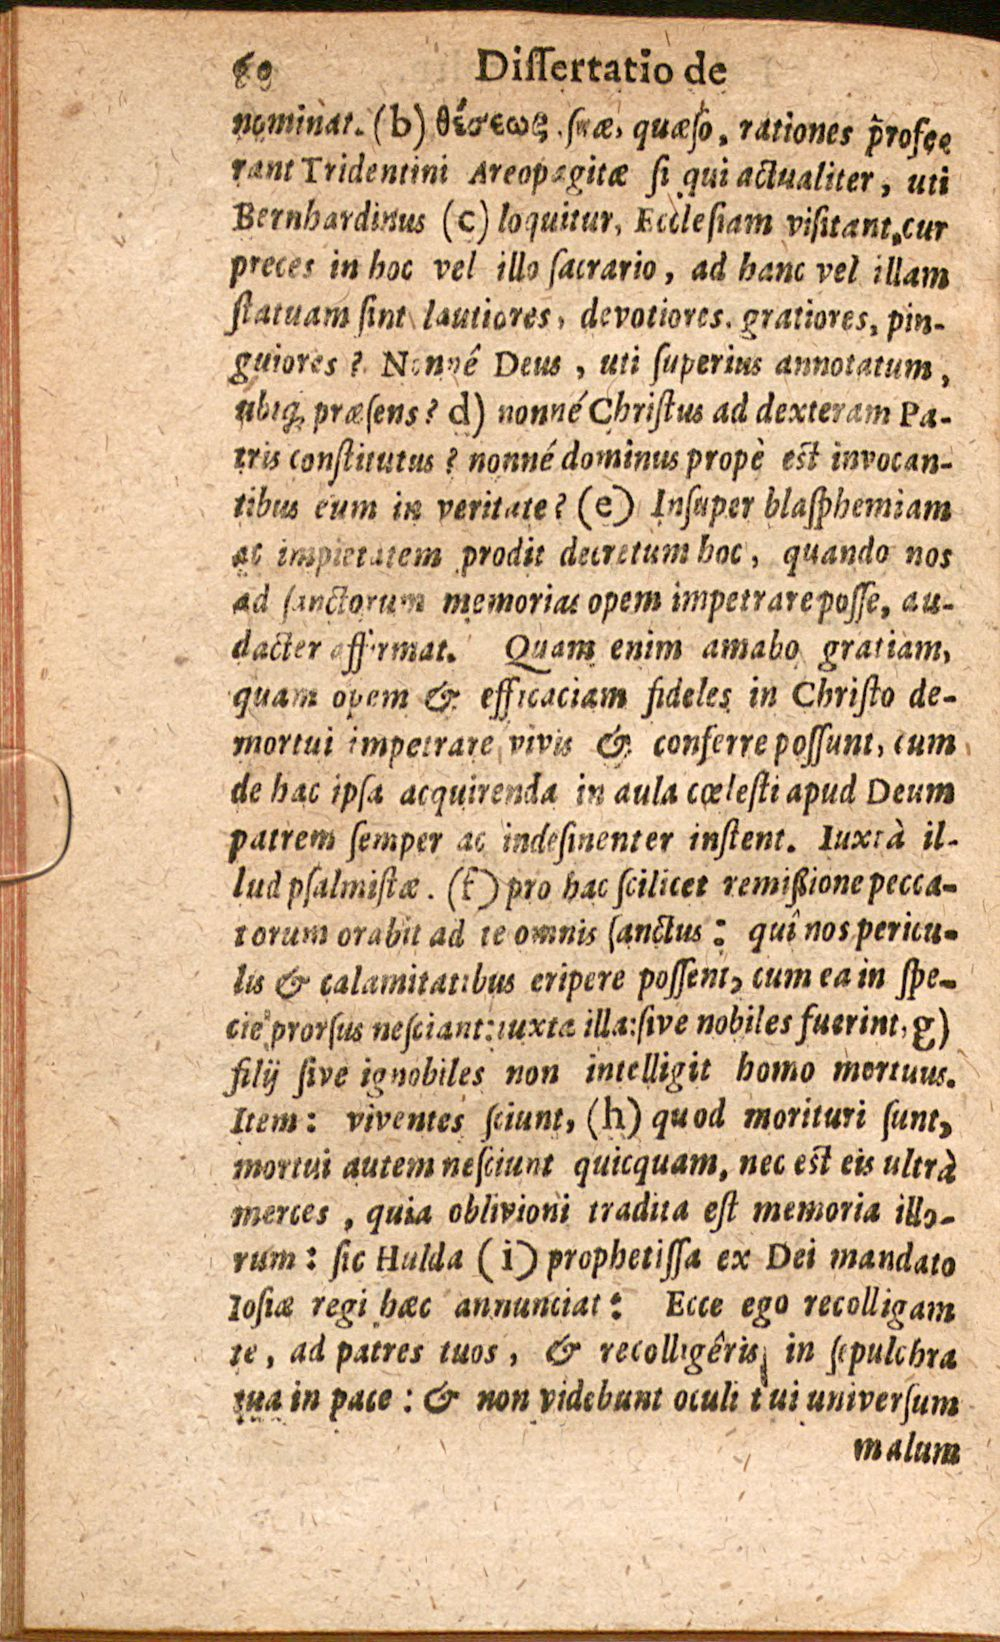 60 Dissertatio de
nominat. (b) θέσεως suæ, quæso, rationes profe-
rant Tridentini Areopagitæ si qui actualiter, uti
Bernhardinus (c) loquitur, Ecclesiam visitant, cur
preces in hoc vel illo sacrario, ad hanc vel illam
statuam sint lautiores, devotiores. gratiores, pin-
guiores? Nonné Deus, uti superius annotatum,
ubiq; præsens? d) nonné Christus ad dexteram Pa-
tris constitutus? nonné dominus propè est invocan-
tibus eum in veritate? (e) Insuper blasphemiam
ac impietatem prodit decretum hoc, quando nos
ad sanctorum memorias opem impetrare posse, au-
dacter affirmat. Quam enim amabo gratiam,
quam opem & efficaciam fideles in Christo de-
mortui impetrare vivis & conferre possunt, cum
de hac ipsa acquirenda in aula cœlesti apud Deum
patrem semper ac indesinenter instent. Iuxtà il-
lud psalmistæ. (f) pro hac scilicet remißione pecca-
torum orabit ad te omnis sanctus: quî nos pericu-
lis & calamitatibus eripere possent, cum ea in spe-
cie prorsus nesciant: iuxta illa: sive nobiles fuerint, g)
filij sive ignobiles non intelligit homo mortuus.
Item: viventes sciunt, (h) quod morituri sunt,
mortui autem nesciunt quicquam, nec est eis ultrà
merces, quia oblivioni tradita est memoria illo-
rum: sic Hulda (i) prophetissa ex Dei mandato
Iosiæ regi hæc annunciat: Ecce ego recolligam
te, ad patres tuos, & recolligêris in sepulchra
tua in pace: & non videbunt oculi tui universum
malum